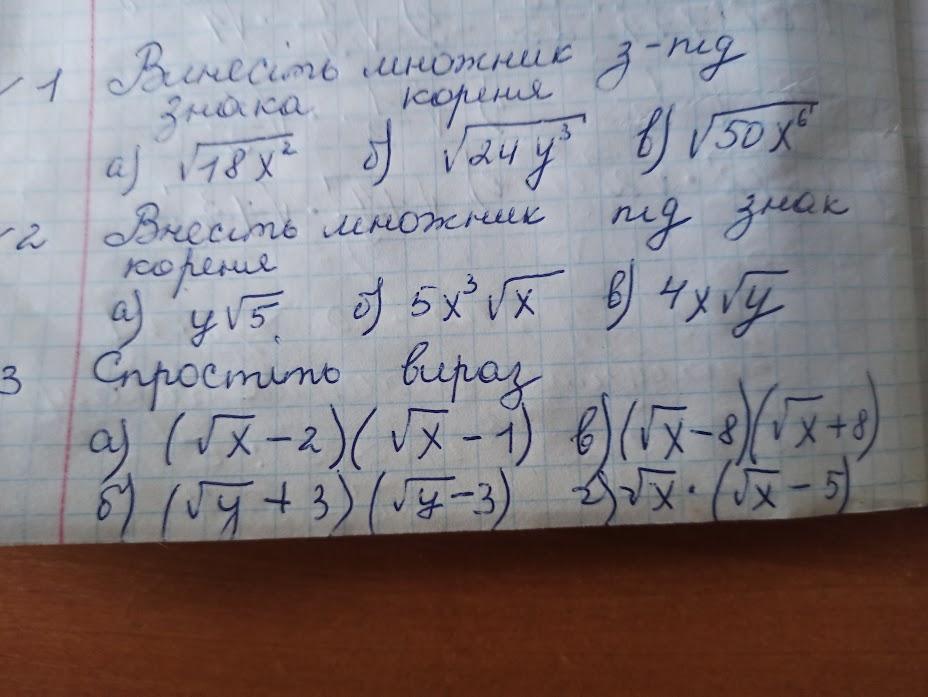 1 Винесіть множник з-під
знака кореня
а) √18x² б) √24y³ в) √50x⁶
2 Внесіть множник під знак
кореня
а) y√5 б) 5x³√x в) 4x√y
3 Спростіть вираз
а) (√x - 2)(√x - 1) в) (√x - 8)(√x + 8)
б) (√y + 3)(√y - 3) г) √x · (√x - 5)